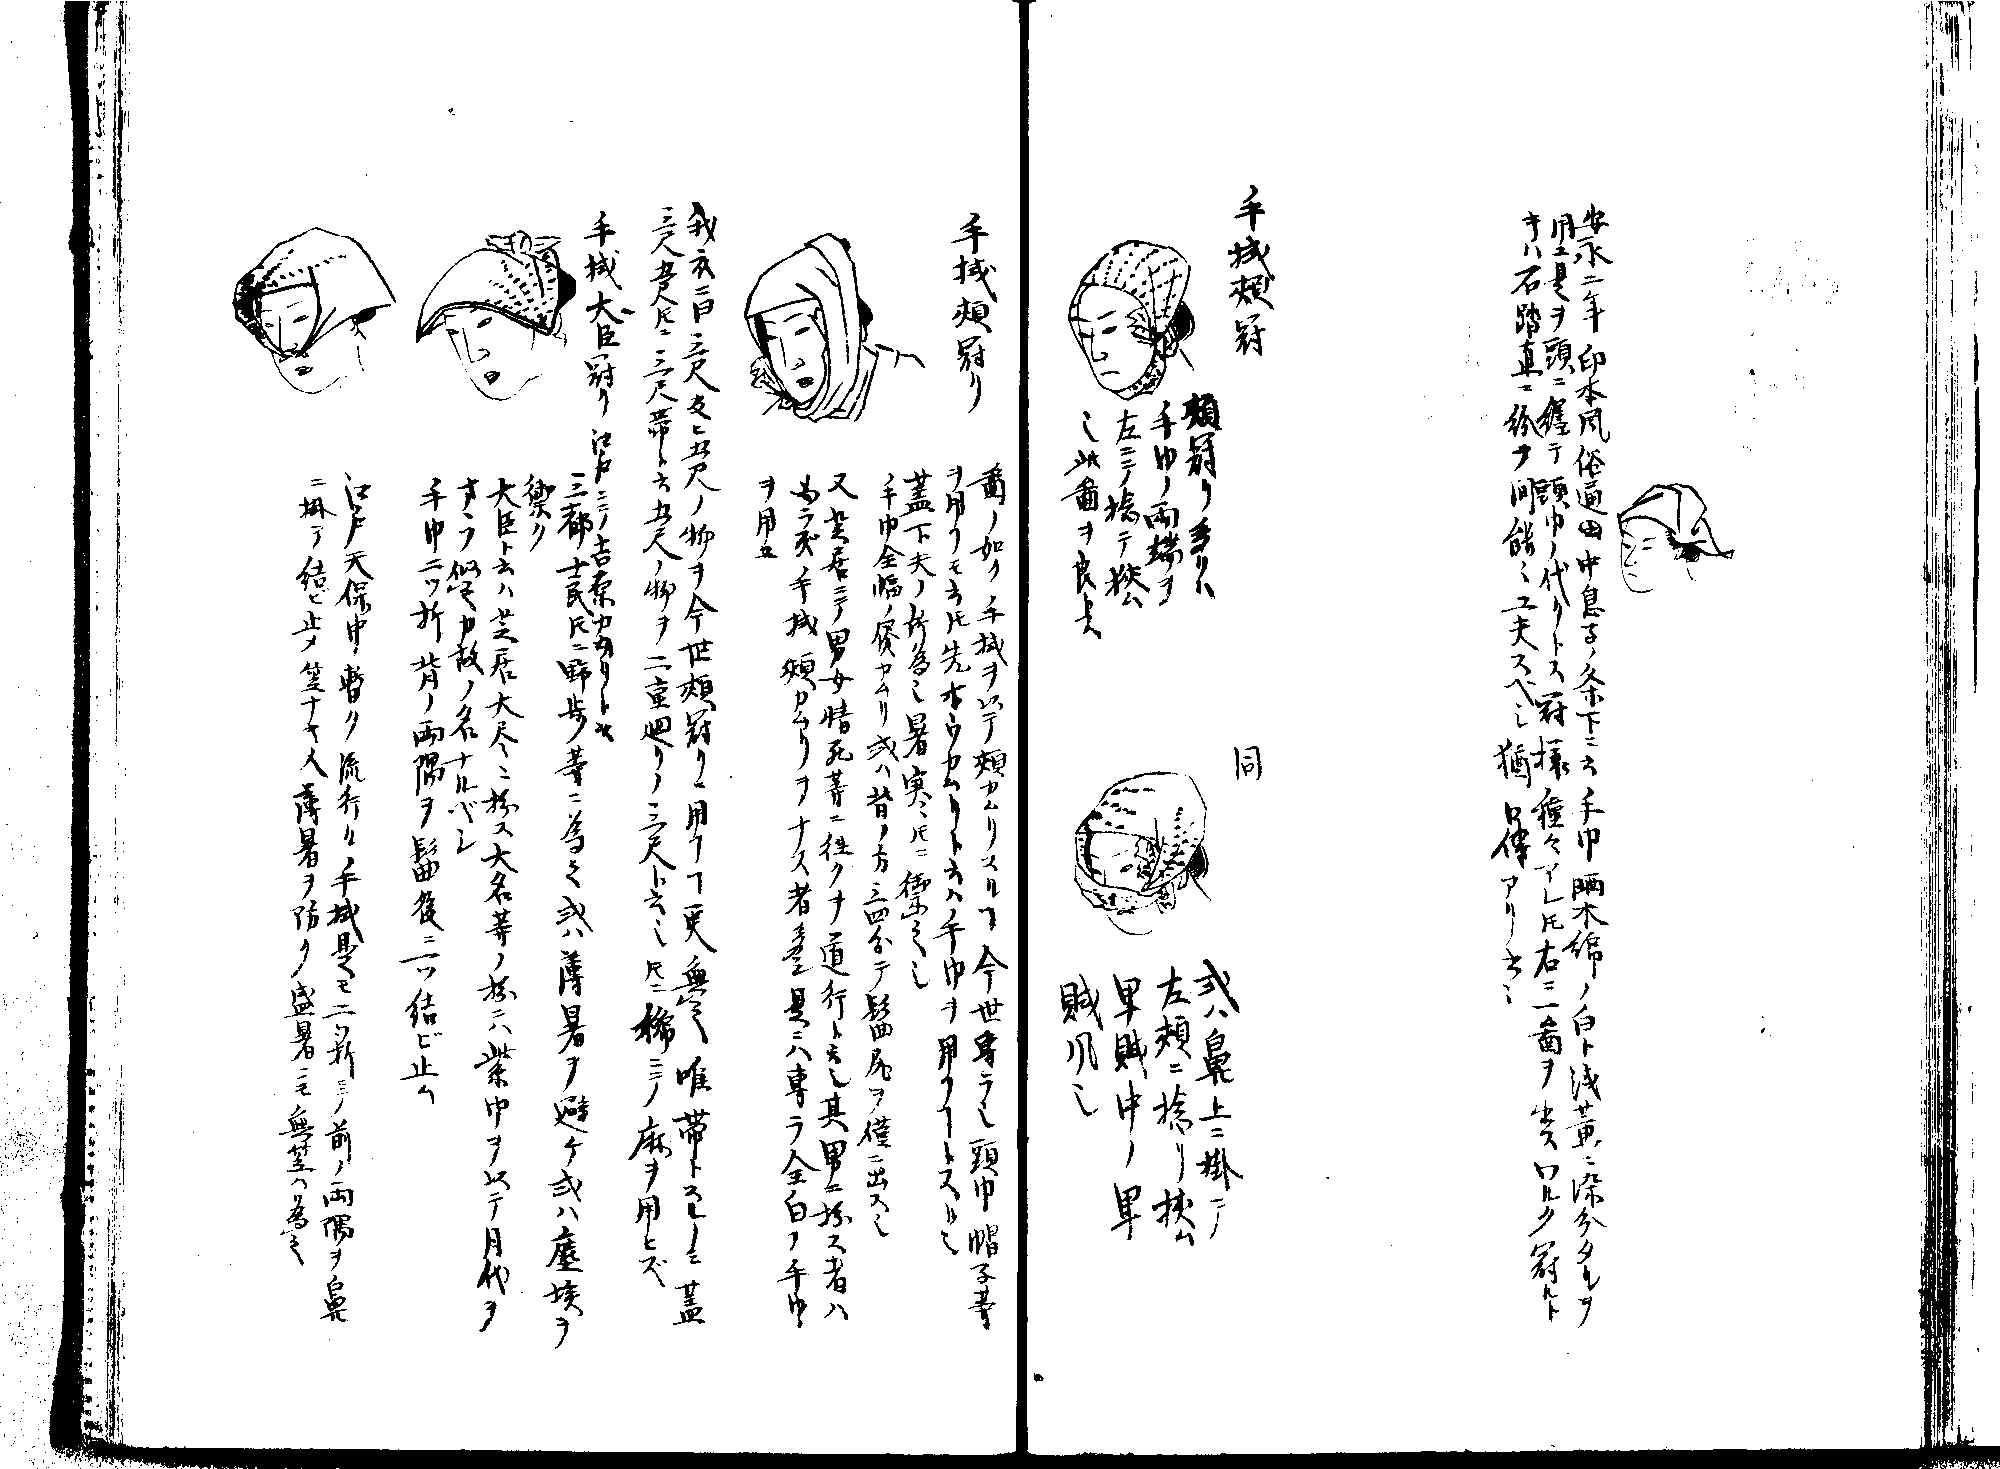 安永二年印本風俗通田中息子ノ条下ニ云手巾晒木綿ノ白ト浅黄ニ染分タルヲ
用ユ是ヲ頭ニ纏テ頭巾ノ代リトス冠様種々アレ𪜈右ニ一図ヲ出スワルク冠ルト
キハ石踏真ニ紛ヲ間能々工夫スベシ猶口傳アリ云々
手拭頬冠
頬冠リ
手巾ノ両端ヲ
左ニテ捻テ挾ム
也此図ヲ良トス
同
或ハ鼻上ニ掛テ
左頬ニ捻リ挾ム
卑賎中ノ卑
賎風也
手拭頬冠リ
図ノ如ク手拭ヲ以テ頬カムリスルヿ今世専ラ也頭巾帽子等
ヲ用フモ云𪜈先ホウカムリト云ハ手巾ヲ用フヿトスル也
蓋下夫ノ所為也暑寒𪜈ニ禦之也
手巾全幅ノ儘カムリ或ハ背ノ方三四分テ髷尻ヲ僅ニ出ス也
又芝居ニテ男女情死等ニ往クヲ道行ト云也其男ニ扮ス者ハ
必ラズ手拭頬カムリヲナス者也是ニハ専ラ全白ノ手巾
ヲ用フ
我衣ニ曰三尺及ヒ五尺ノ物ヲ今世頬冠リニ用フヿ更無之唯帯トスルノミ蓋
三尺五尺𪜈ニ三尺帯ト云五尺ノ物ヲ二重廻リノ三尺ト云也𪜈ニ綿ニテ麻ヲ用ヒズ
手拭大臣冠リ 江戸ニテ吉原カムリト云
三都士民𪜈ニ野歩等ニ為之或ハ薄暑ヲ避ケ或ハ塵埃ヲ
禦ク
大臣ト云ハ芝居大尽ニ扮ス大名等ノ扮ニハ紫巾ヲ以テ月代ヲ
オフ似タル故ノ名ナルベシ
手巾二ツ折背ノ両隅ヲ髷後ニツ結ビ止ム
江戸天保中暫ク流行リ手拭是モ二ツ折ニシテ前ノ両隅ヲ鼻
ニ掛テ結ビ止メ笠ナキ人薄暑ヲ防ク盛暑ニモ無笠ハ為之